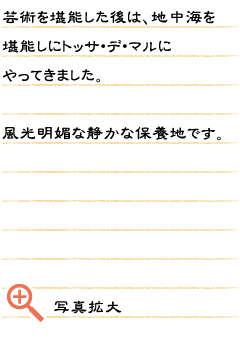 芸術を堪能した後は、地中海を
堪能しにトッサ・デ・マルに
やってきました。
風光明媚な静かな保養地です。
写真拡大